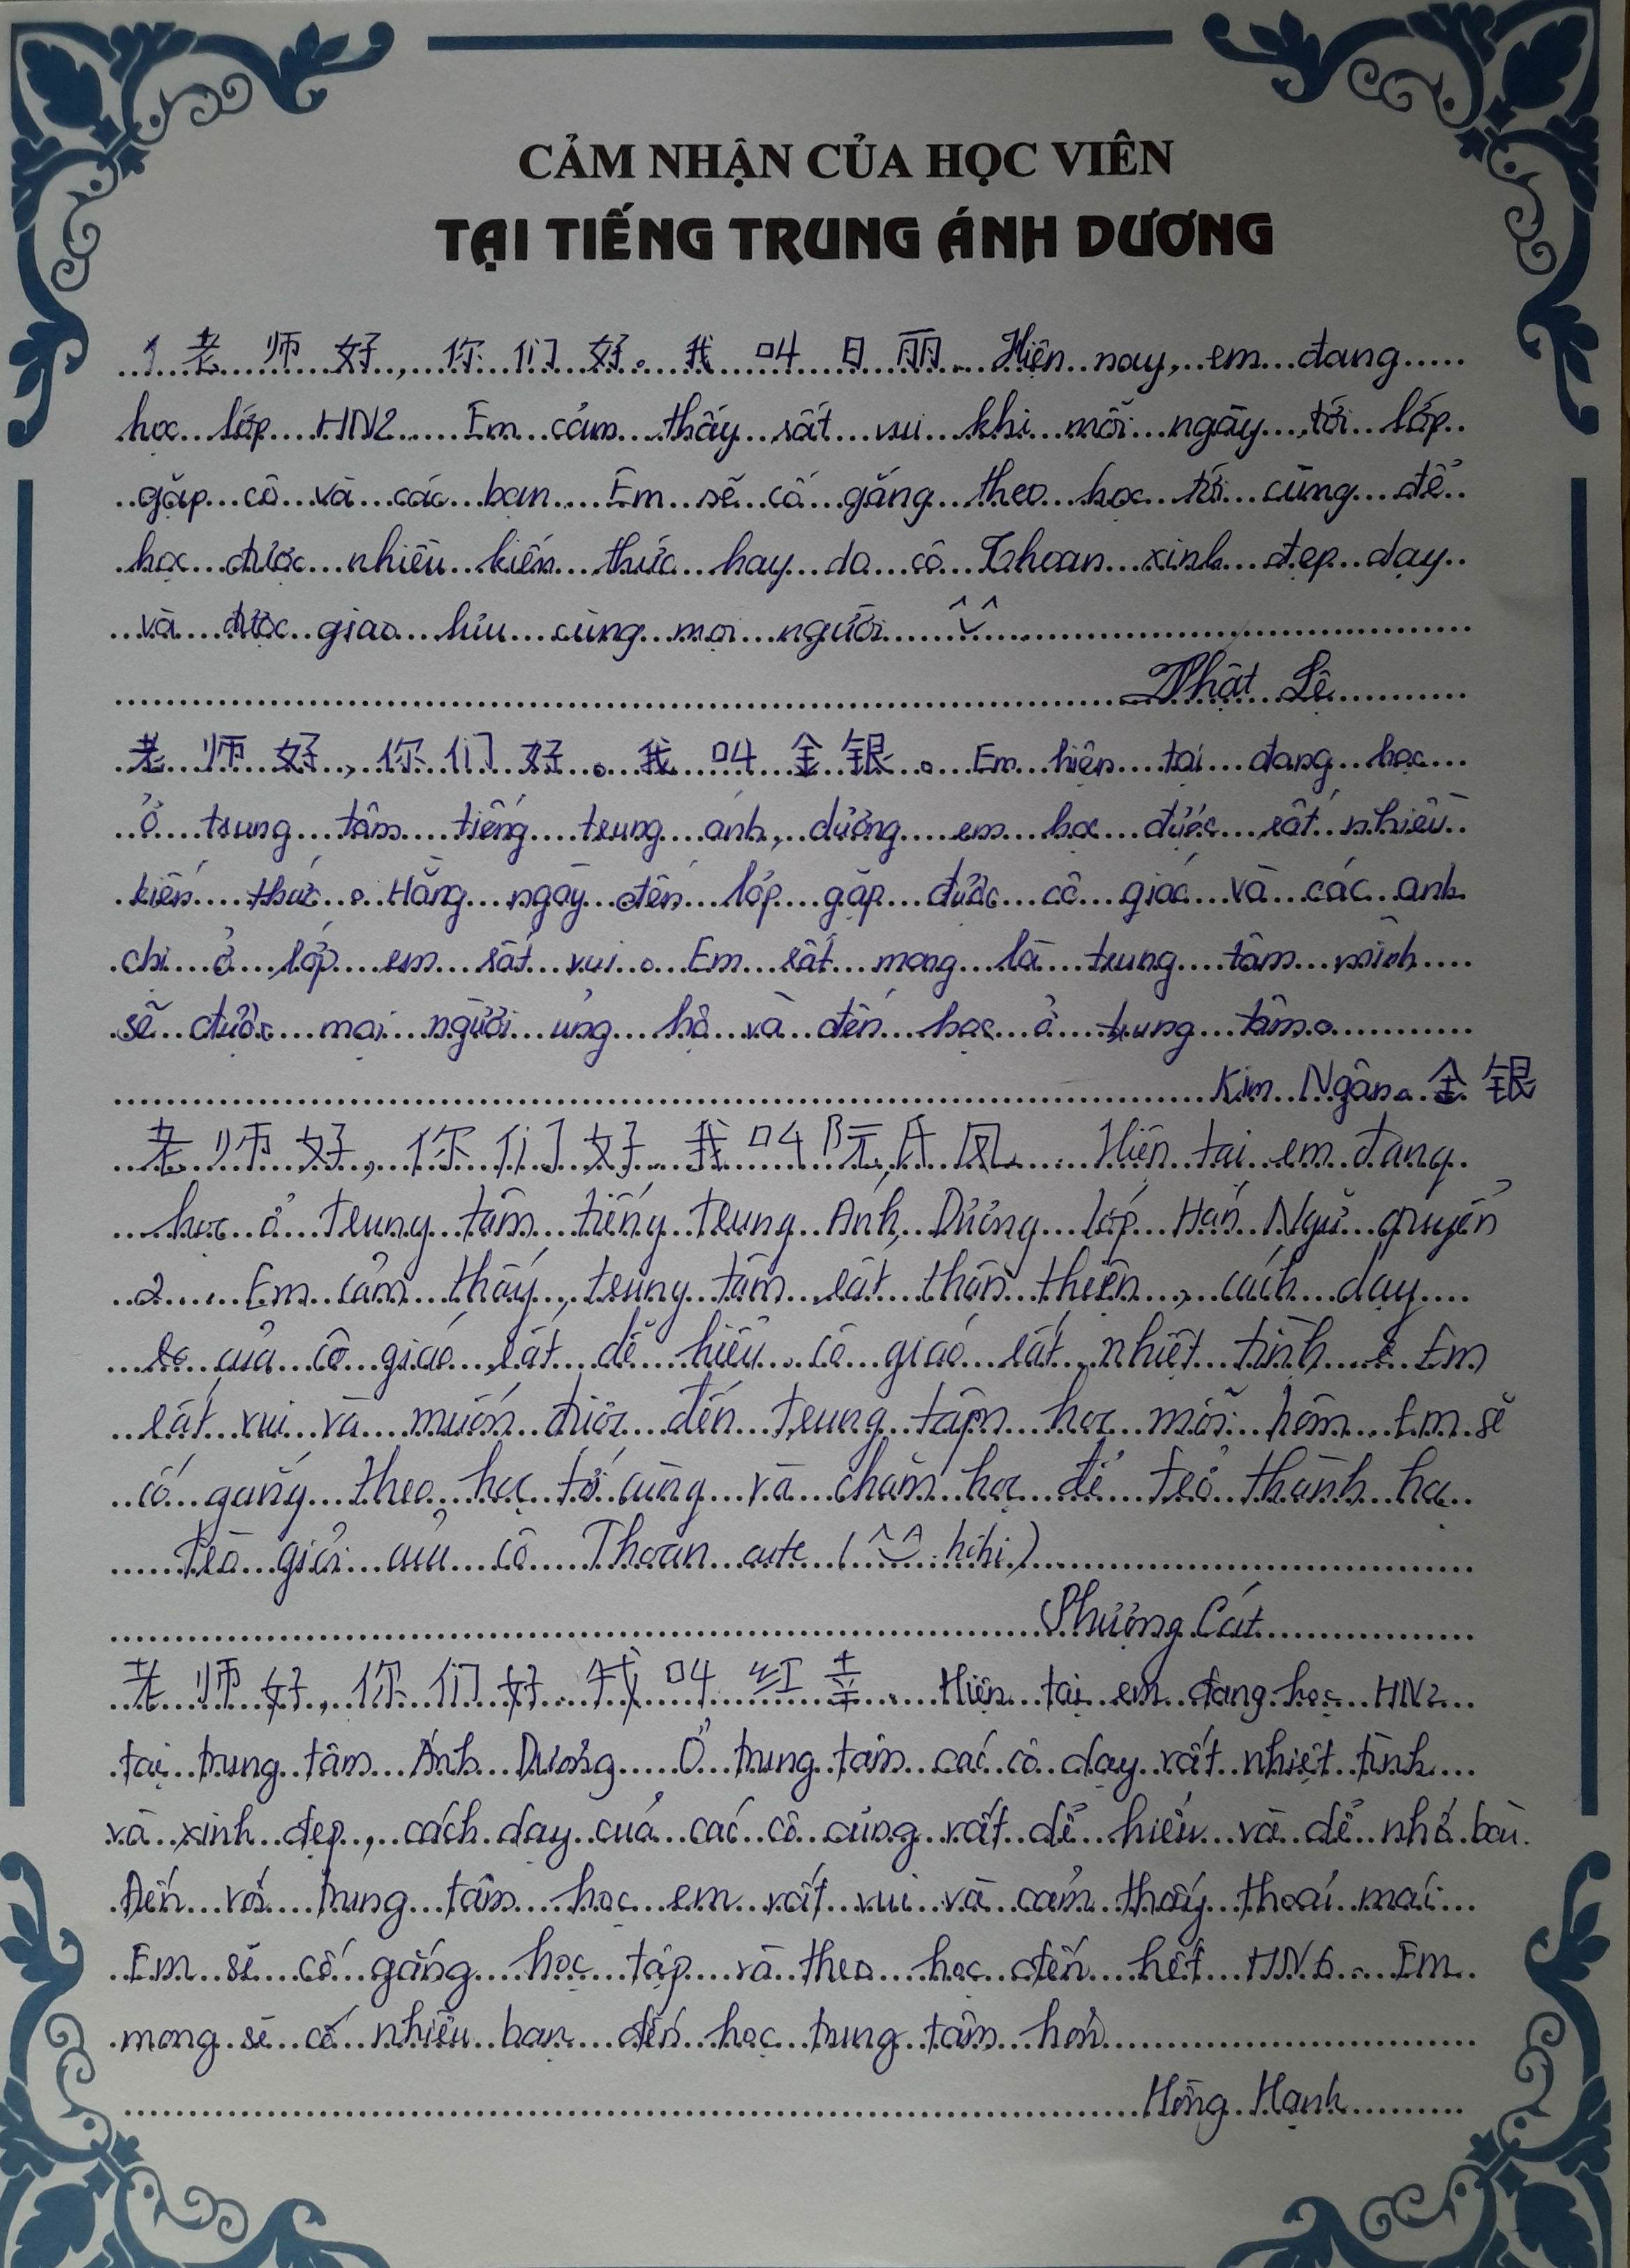 CẢM NHẬN CỦA HỌC VIÊN
TẠI TIẾNG TRUNG ÁNH DƯƠNG
1 老师好, 你们好。我叫日丽. Hiện nay, em đang
học lớp HN2. Em cảm thấy rất vui khi mỗi ngày tới lớp
gặp cô và các bạn. Em sẽ cố gắng theo học tới cùng để
học được nhiều kiến thức hay do cô Thoan xinh đẹp dạy
và được giao lưu cùng mọi người ^‿^
Nhật Lệ
老师好, 你们好。我叫金银。Em hiện tại đang học
ở trung tâm tiếng trung ánh dương em học được rất nhiều
kiến thức. Hằng ngày đến lớp gặp được cô giáo và các anh
chị ở lớp em rất vui. Em rất mong là trung tâm mình
sẽ được mọi người ủng hộ và đến học ở trung tâm.
Kim Ngân. 金银
老师好, 你们好. 我叫阮氏凤. Hiện tại em đang
học ở trung tâm tiếng Trung Ánh Dương lớp Hán Ngữ quyển
2. Em cảm thấy, trung tâm rất thân thiện, cách dạy
của cô giáo rất dễ hiểu. cô giáo rất nhiệt tình. Em
rất vui và muốn được đến trung tâm học mỗi hôm. Em sẽ
cố gắng theo học tới cùng và chăm học để trở thành học
trò giỏi của cô Thoan cute (^‿^ hihi)
Phượng Cát
老师好, 你们好. 我叫红幸. Hiện tại em đang học HN2
tại trung tâm Ánh Dương. Ở trung tâm các cô dạy rất nhiệt tình
và xinh đẹp, cách dạy của các cô cũng rất dễ hiểu và dễ nhớ bài.
Đến với trung tâm học em rất vui và cảm thấy thoải mái.
Em sẽ cố gắng học tập và theo học đến hết HN6. Em
mong sẽ có nhiều bạn đến học trung tâm hơn
Hồng Hạnh